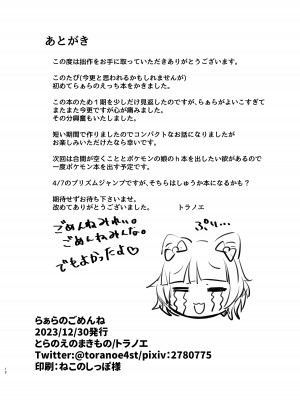 あとがき
この度は拙作をお手に取っていただきありがとうございます。
このたび(今更と思われるかもしれませんが)
初めてらぁらのえっち本をかきました。
この本のため１期を少しだけ見返したのですが、らぁらがよいこすぎて
またまた今更ですが心が痛みました。
その分興奮もいたしました。
短い期間で作りましたのでコンパクトなお話になりましたが
お楽しみいただけたなら幸いです。
次回は合間が空くこととポケモンの娘のｈ本を出したい欲があるので
一度ポケモン本を出す予定です。
4/7のプリズムジャンプですが、そちらはしゅうか本になるかも？
期待せずお待ち下さいませ。
改めてありがとうございました。 トラノエ
ごめんねみれぃ。
ごめんねみんな。
でもよかったよ♡
ぷり…
らぁらのごめんね
2023/12/30発行
とらのえのまきもの/トラノエ
Twitter:@toranoe4st/pixiv：2780775
印刷：ねこのしっぽ様